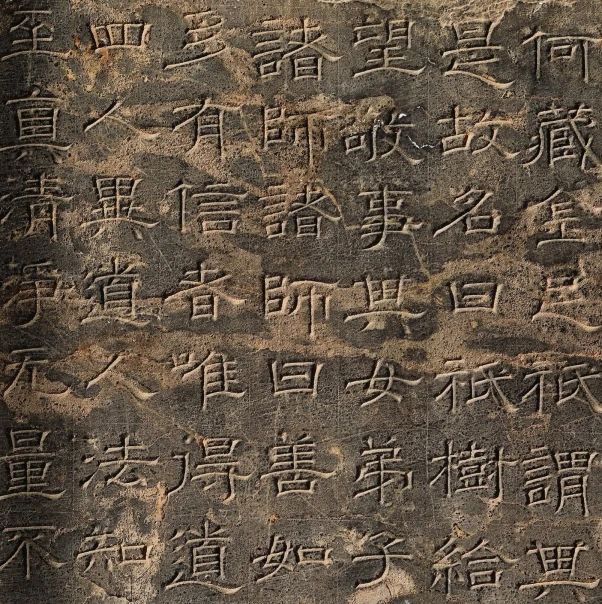 何藏金足祇謂與
是故名曰祇樹給
望敬事與女弟子
諸師諸師曰善如
多有信者唯得道
四人異道人法知
至真清淨无量不